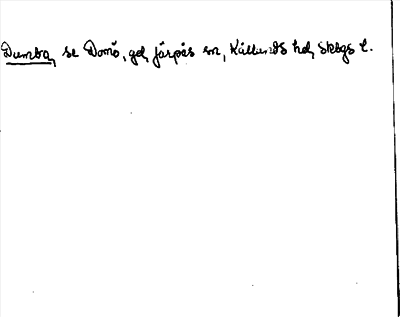 Dumba, se Domö, gd, Järpås sn, Kållands hd, Skbgs l.